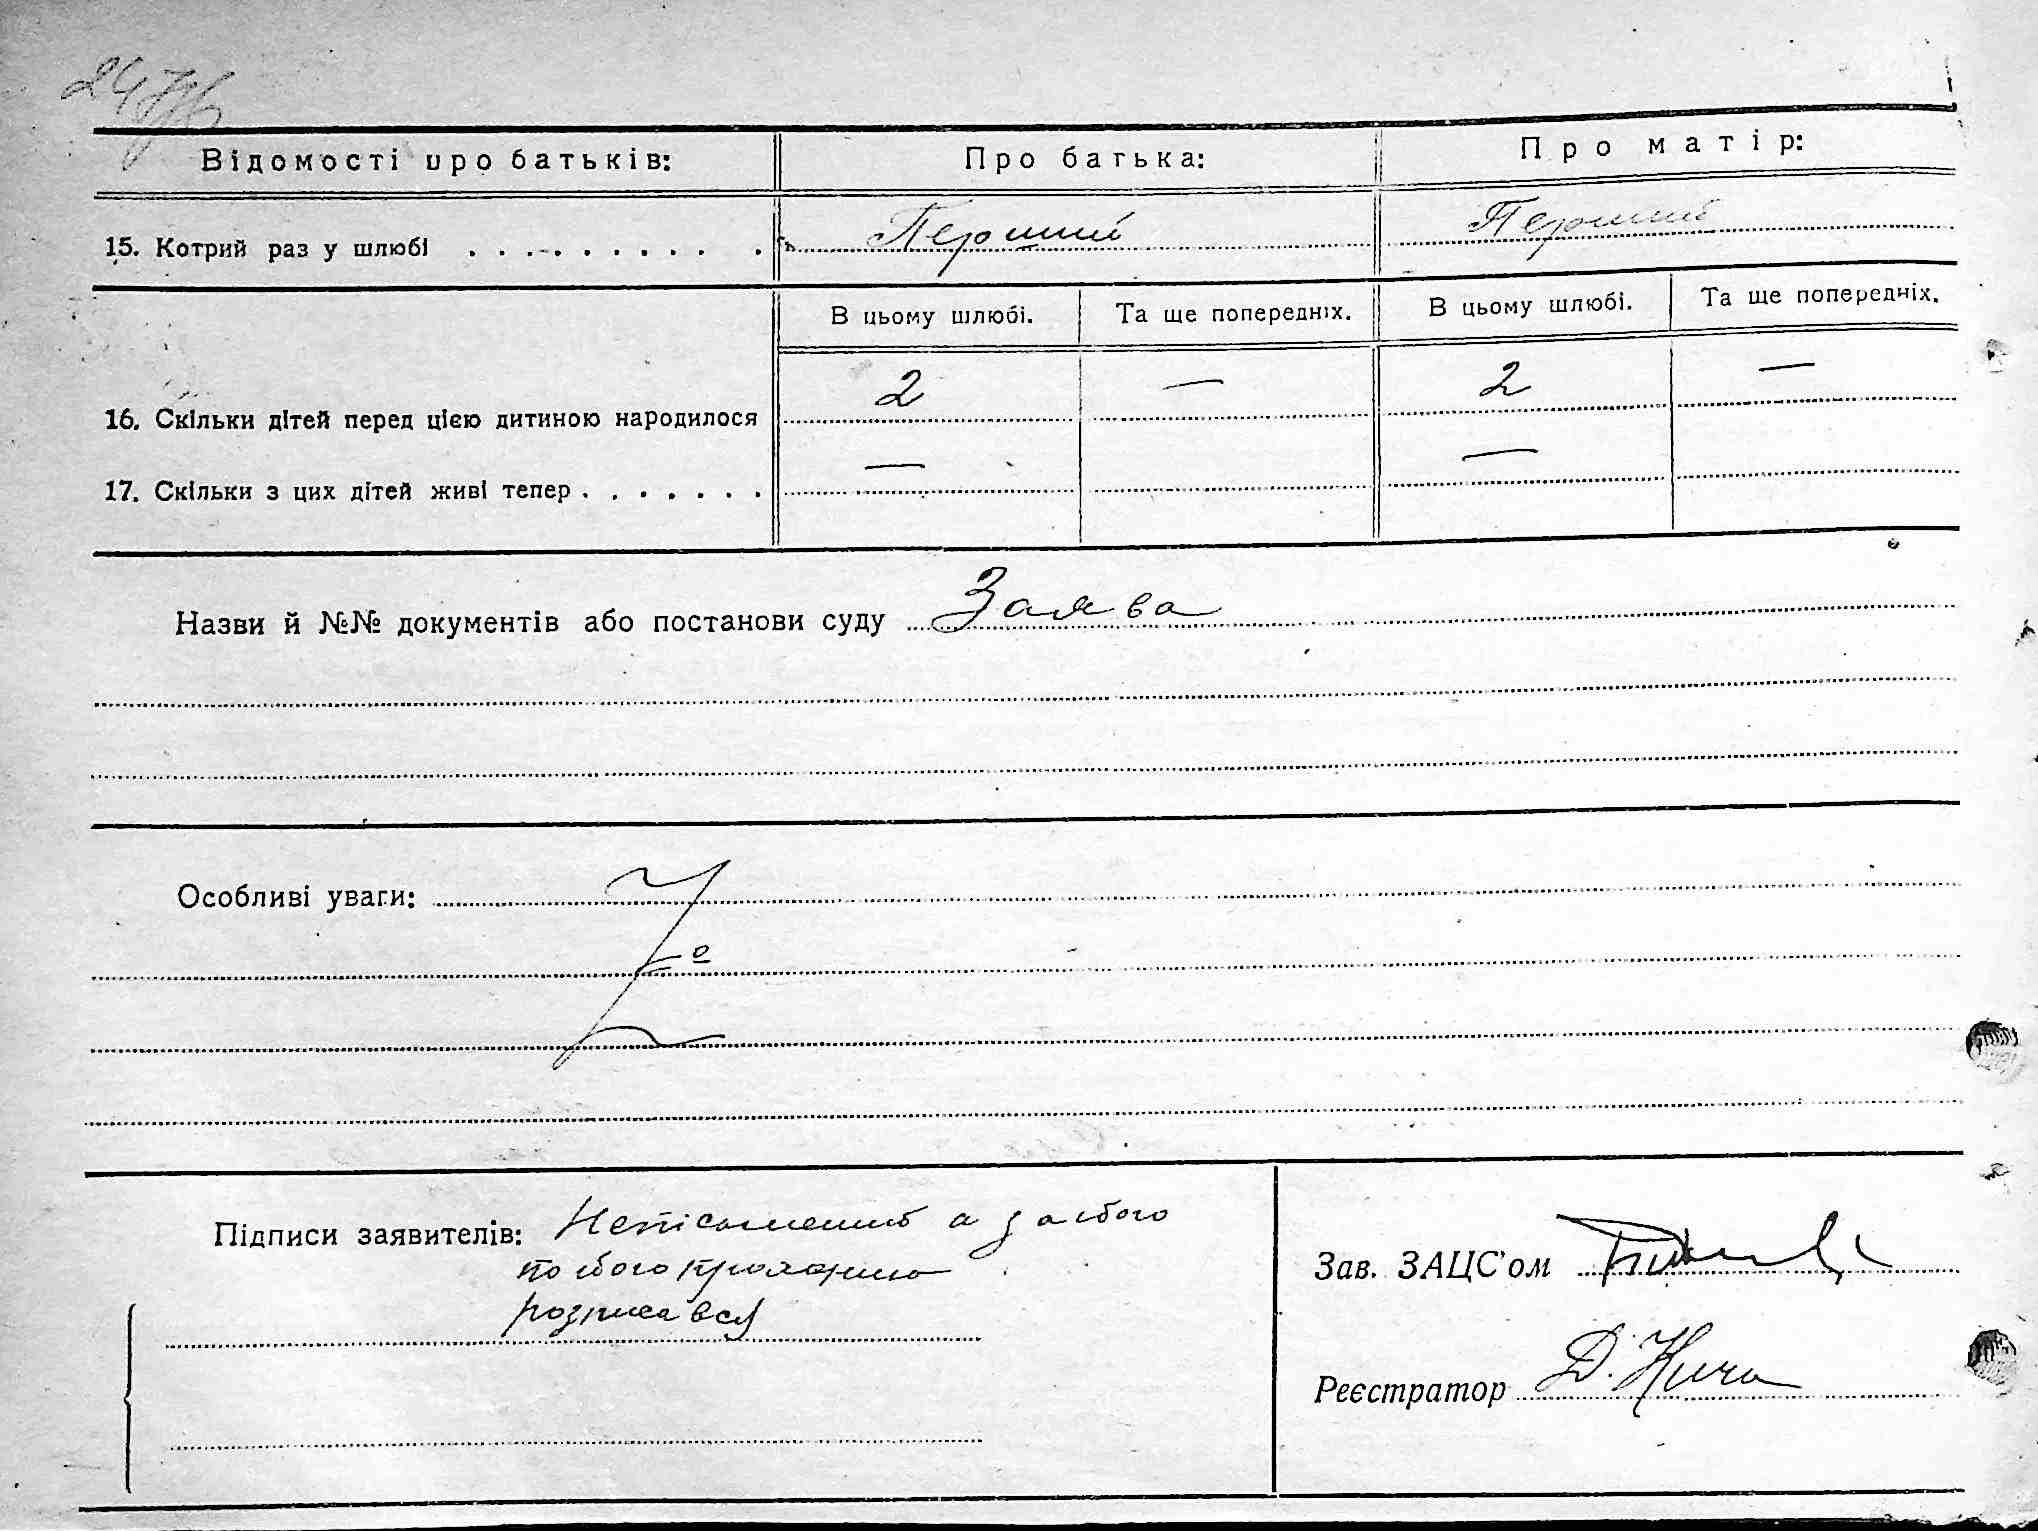 Відомості про батьків: Про батька: Про матір:
15. Котрий раз у шлюбі Перший Перший
В цьому шлюбі. Та ще попередніх. В цьому шлюбі. Та ще попередніх.
16. Скільки дітей перед цією дитиною народилося 2 — 2 —
17. Скільки з цих дітей живі тепер — —
Назви й №№ документів або постанови суду Заява
Особливі уваги:
Підписи заявителів: Неписьменний а за його
по його проханню
розписався
Зав. ЗАЦС'ом
Реєстратор Д.